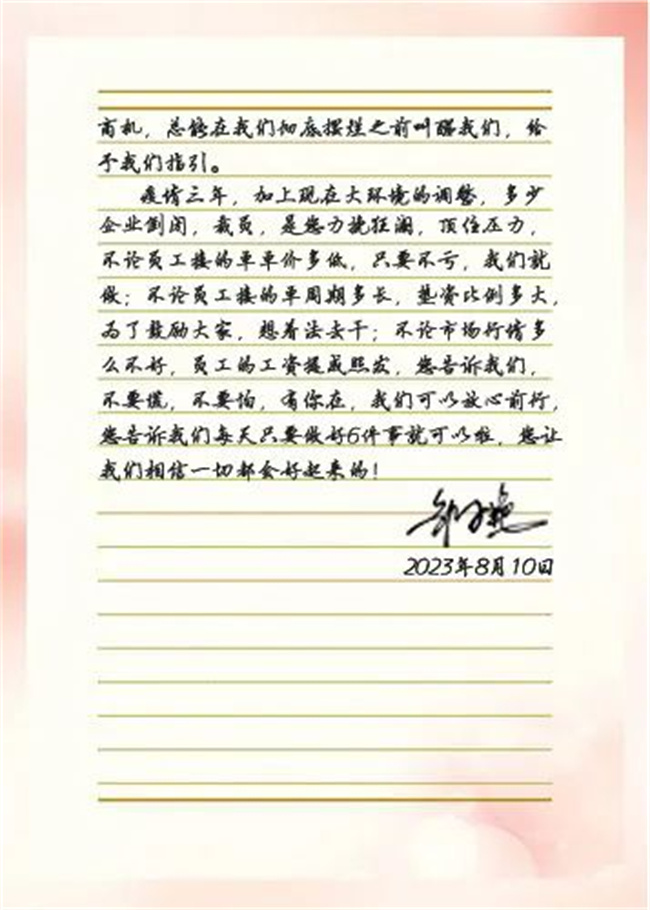 商机，总能在我们彻底摆烂之前叫醒我们，给
予我们指引。
疫情三年，加上现在大环境的调整，多少
企业倒闭，裁员，是您力挽狂澜，顶住压力，
不论员工接的单单价多低，只要不亏，我们就
做；不论员工接的单周期多长，垫资比例多大，
为了鼓励大家，想着法去干；不论市场行情多
么不好，员工的工资提成照发，您告诉我们，
不要慌，不要怕，有你在，我们可以放心前行，
您告诉我们每天只要做好6件事就可以啦，您让
我们相信一切都会好起来的！
2023年8月10日